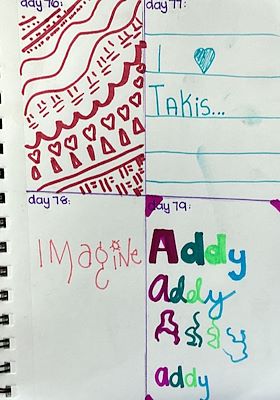 day 76:
day 77:
I ♥
TAKis...
day 78:
IMagiNe
day 79:
Addy
addy
Addy
addy